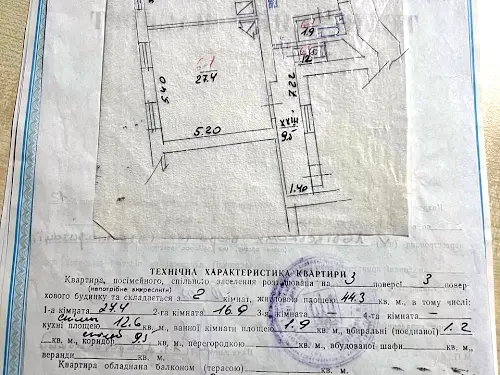 1.9
1.2
27.4
5.40
7.22
XXIII
9.5
5.20
1.40
ТЕХНІЧНА ХАРАКТЕРИСТИКА КВАРТИРИ
Квартира, посімейного, спільного заселення розташована на 3 поверсі 3 повер-
(непотрібне викреслити)
хового будинку та складається з 2 кімнат, житловою площею 44.3 кв. м., в тому числі:
1-а кімната 27.4 2-га кімната 16.9 3-я кімната – 4-та кімната –
кухні площею 12.6 кв. м., ванної кімнати площею 1.9 кв. м., вбиральні (поєднаної) 1.2
кв. м., коридор 9.5 кв. м., перегородкою кв. м., вбудованої шафи кв. м.,
веранди кв. м.
Квартира обладнана балконом (терасою) кв. м.